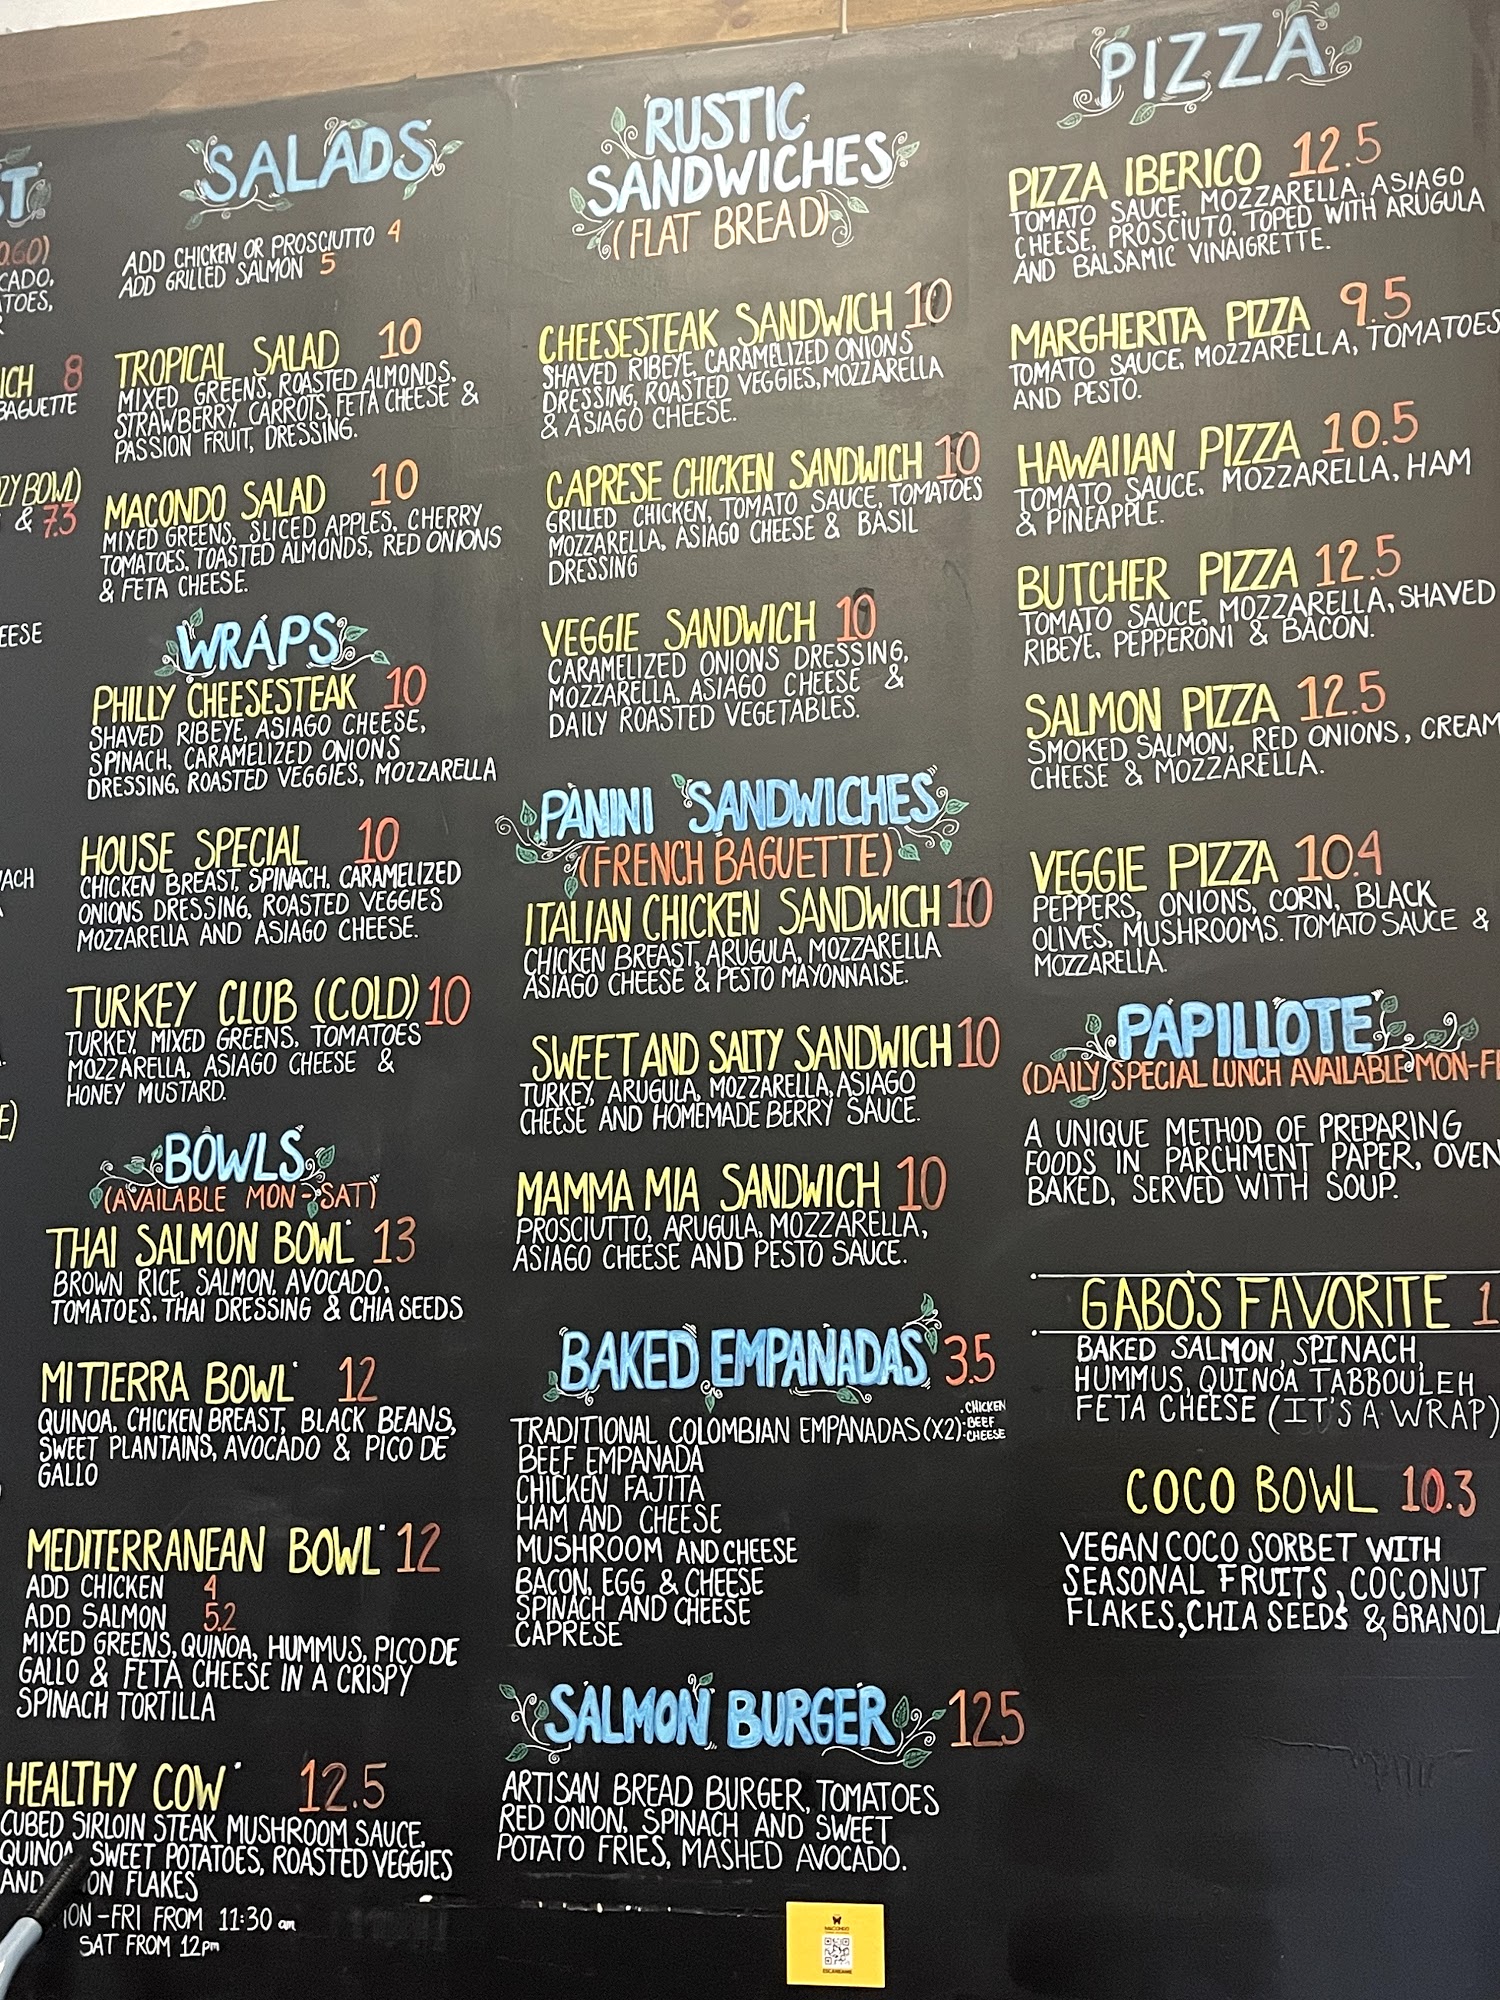 ST
0.60)
CADO,
ATOES,
ICH 8
BAGUETTE
ZY BOWL)
& 7.3
EESE
ACH
E)
SALADS
ADD CHICKEN OR PROSCIUTTO 4
ADD GRILLED SALMON 5
TROPICAL SALAD 10
MIXED GREENS, ROASTED ALMONDS,
STRAWBERRY, CARROTS, FETA CHEESE &
PASSION FRUIT, DRESSING.
MACONDO SALAD 10
MIXED GREENS, SLICED APPLES, CHERRY
TOMATOES, TOASTED ALMONDS, RED ONIONS
& FETA CHEESE.
WRAPS
PHILLY CHEESESTEAK 10
SHAVED RIBEYE, ASIAGO CHEESE,
SPINACH, CARAMELIZED ONIONS
DRESSING, ROASTED VEGGIES, MOZZARELLA
HOUSE SPECIAL 10
CHICKEN BREAST, SPINACH, CARAMELIZED
ONIONS DRESSING, ROASTED VEGGIES
MOZZARELLA AND ASIAGO CHEESE.
TURKEY CLUB (COLD) 10
TURKEY, MIXED GREENS, TOMATOES
MOZZARELLA, ASIAGO CHEESE &
HONEY MUSTARD.
BOWLS
(AVAILABLE MON-SAT)
THAI SALMON BOWL* 13
BROWN RICE, SALMON, AVOCADO,
TOMATOES, THAI DRESSING & CHIA SEEDS
MITIERRA BOWL* 12
QUINOA, CHICKEN BREAST, BLACK BEANS,
SWEET PLANTAINS, AVOCADO & PICO DE
GALLO
MEDITERRANEAN BOWL* 12
ADD CHICKEN 4
ADD SALMON 5.2
MIXED GREENS, QUINOA, HUMMUS, PICO DE
GALLO & FETA CHEESE IN A CRISPY
SPINACH TORTILLA
HEALTHY COW* 12.5
CUBED SIRLOIN STEAK MUSHROOM SAUCE,
QUINOA SWEET POTATOES, ROASTED VEGGIES
AND ON FLAKES
ON-FRI FROM 11:30 am
SAT FROM 12pm
RUSTIC
SANDWICHES
(FLAT BREAD)
CHEESESTEAK SANDWICH 10
SHAVED RIBEYE, CARAMELIZED ONIONS
DRESSING, ROASTED VEGGIES, MOZZARELLA
& ASIAGO CHEESE.
CAPRESE CHICKEN SANDWICH 10
GRILLED CHICKEN, TOMATO SAUCE, TOMATOES
MOZZARELLA, ASIAGO CHEESE & BASIL
DRESSING
VEGGIE SANDWICH 10
CARAMELIZED ONIONS DRESSING,
MOZZARELLA, ASIAGO CHEESE &
DAILY ROASTED VEGETABLES.
PANINI SANDWICHES
(FRENCH BAGUETTE)
ITALIAN CHICKEN SANDWICH 10
CHICKEN BREAST, ARUGULA, MOZZARELLA
ASIAGO CHEESE & PESTO MAYONNAISE.
SWEET AND SALTY SANDWICH 10
TURKEY, ARUGULA, MOZZARELLA, ASIAGO
CHEESE AND HOMEMADE BERRY SAUCE.
MAMMA MIA SANDWICH 10
PROSCIUTTO, ARUGULA, MOZZARELLA,
ASIAGO CHEESE AND PESTO SAUCE.
BAKED EMPANADAS 3.5
TRADITIONAL COLOMBIAN EMPANADAS (X2):
.CHICKEN
-BEEF
-CHEESE
BEEF EMPANADA
CHICKEN FAJITA
HAM AND CHEESE
MUSHROOM AND CHEESE
BACON, EGG & CHEESE
SPINACH AND CHEESE
CAPRESE
SALMON BURGER 12.5
ARTISAN BREAD BURGER, TOMATOES
RED ONION, SPINACH AND SWEET
POTATO FRIES, MASHED AVOCADO.
MACONDO
PIZZA
PIZZA IBERICO 12.5
TOMATO SAUCE, MOZZARELLA, ASIAGO
CHEESE, PROSCIUTO, TOPED WITH ARUGULA
AND BALSAMIC VINAIGRETTE.
MARGHERITA PIZZA 9.5
TOMATO SAUCE, MOZZARELLA, TOMATOES
AND PESTO.
HAWAIIAN PIZZA 10.5
TOMATO SAUCE, MOZZARELLA, HAM
& PINEAPPLE.
BUTCHER PIZZA 12.5
TOMATO SAUCE, MOZZARELLA, SHAVED
RIBEYE, PEPPERONI & BACON.
SALMON PIZZA 12.5
SMOKED SALMON, RED ONIONS, CREAM
CHEESE & MOZZARELLA.
VEGGIE PIZZA 10.4
PEPPERS, ONIONS, CORN, BLACK
OLIVES, MUSHROOMS, TOMATO SAUCE &
MOZZARELLA.
PAPILLOTE
(DAILY SPECIAL LUNCH AVAILABLE MON-F
A UNIQUE METHOD OF PREPARING
FOODS IN PARCHMENT PAPER, OVEN
BAKED, SERVED WITH SOUP.
GABO'S FAVORITE 1
BAKED SALMON, SPINACH,
HUMMUS, QUINOA TABBOULEH
FETA CHEESE (IT'S A WRAP)
COCO BOWL 10.3
VEGAN COCO SORBET WITH
SEASONAL FRUITS, COCONUT
FLAKES, CHIA SEEDS & GRANOLA